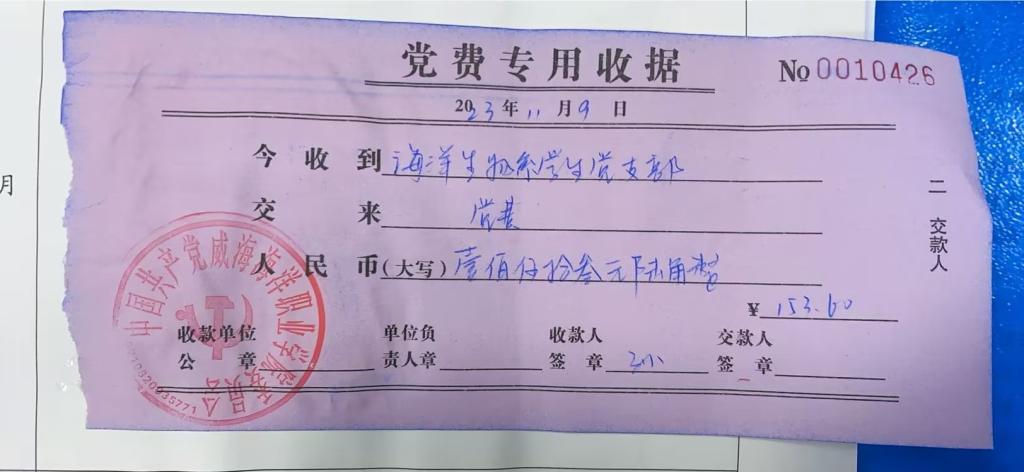 党费专用收据
No 0010426
2023年11月9日
今收到 海洋生物系学生党支部
交来 党费
人民币(大写) 壹佰伍拾叁元陆角整
¥ 153.60
收款单位公章
单位负责人章
收款人签章
交款人签章
二 交款人
中国共产党威海海洋职业学院委员会
月